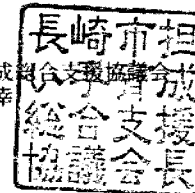 成総合支援協議会
幸
長崎市担
い手育成
総合支援
協議会長